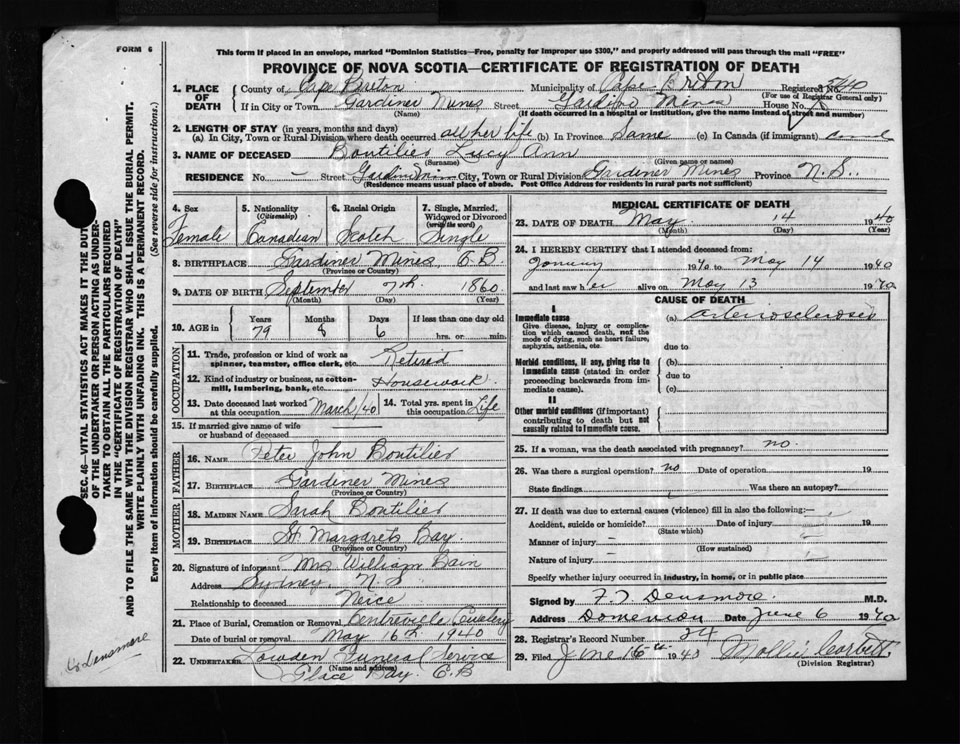 FORM 6
This form if placed in an envelope, marked "Dominion Statistics—Free, penalty for improper use $300," and properly addressed will pass through the mail "FREE"
PROVINCE OF NOVA SCOTIA—CERTIFICATE OF REGISTRATION OF DEATH
1. PLACE OF DEATH County of Cape Breton Municipality of Cape Breton Registered No.
(For use of Registrar General only)
If in City or Town Gardiner Mines Street Gardiner Mines House No.
(Name) (If death occurred in a hospital or institution, give the name instead of street and number)
2. LENGTH OF STAY (in years, months and days)
(a) In City, Town or Rural Division where death occurred all her life (b) In Province Same (c) In Canada (if immigrant)
3. NAME OF DECEASED Boutilier Lucy Ann
(Surname) (Given name or names)
RESIDENCE No. – Street Gardiner Mines City, Town or Rural Division Gardiner Mines Province N.S.
(Residence means usual place of abode. Post Office Address for residents in rural parts not sufficient)
4. Sex 5. Nationality (Citizenship) 6. Racial Origin 7. Single, Married, Widowed or Divorced (write the word)
Female Canadian Scotch Single
8. BIRTHPLACE Gardiner Mines C.B.
(Province or Country)
9. DATE OF BIRTH September 7th 1860
(Month) (Day) (Year)
10. AGE in Years Months Days If less than one day old
79 8 6 hrs. or min.
OCCUPATION
11. Trade, profession or kind of work as spinner, teamster, office clerk, etc. Retired
12. Kind of industry or business, as cotton-mill, lumbering, bank, etc. Housework.
13. Date deceased last worked at this occupation March/40 14. Total yrs. spent in this occupation Life
15. If married give name of wife or husband of deceased —
FATHER
16. NAME Peter John Boutilier
17. BIRTHPLACE Gardiner Mines
(Province or Country)
MOTHER
18. MAIDEN NAME Sarah Boutilier
19. BIRTHPLACE St Margarets Bay.
(Province or Country)
20. Signature of informant Mrs William Bain
Address Sydney N.S.
Relationship to deceased Neice
21. Place of Burial, Cremation or Removal Centreville
Date of burial or removal May 16th 1940
22. UNDERTAKER Lowden Funeral Service
(Name and address)
Glace Bay. C.B
MEDICAL CERTIFICATE OF DEATH
23. DATE OF DEATH May 14 1940
(Month) (Day) (Year)
24. I HEREBY CERTIFY that I attended deceased from:
January 1940 to May 14 1940
and last saw her alive on May 13 1940
CAUSE OF DEATH
I
Immediate cause (a) arteriosclerosis
Give disease, injury or complication which caused death, not the mode of dying, such as heart failure, asphyxia, asthenia, etc.
due to
Morbid conditions, if any, giving rise to immediate cause (stated in order proceeding backwards from immediate cause).
(b)
due to
(c)
II
Other morbid conditions (if important) contributing to death but not causally related to immediate cause.
25. If a woman, was the death associated with pregnancy? no.
26. Was there a surgical operation? no Date of operation 19
State findings Was there an autopsy?
27. If death was due to external causes (violence) fill in also the following:—
Accident, suicide or homicide? Date of injury 19
(State which)
Manner of injury –
(How sustained)
Nature of injury –
Specify whether injury occurred in industry, in home, or in public place
Signed by F.T. Densmore. M.D.
Address Dominion Date June 6 1940
28. Registrar's Record Number 24
29. Filed June 16th 1940 Mollie Corbett.
(Division Registrar)
SEC. 46—VITAL STATISTICS ACT MAKES IT THE DUTY OF THE UNDERTAKER OR PERSON ACTING AS UNDERTAKER TO OBTAIN ALL THE PARTICULARS REQUIRED IN THE "CERTIFICATE OF REGISTRATION OF DEATH"
AND TO FILE THE SAME WITH THE DIVISION REGISTRAR WHO SHALL ISSUE THE BURIAL PERMIT.
WRITE PLAINLY WITH UNFADING INK. THIS IS A PERMANENT RECORD.
Every item of information should be carefully supplied. (See reverse side for instructions.)
Densmore